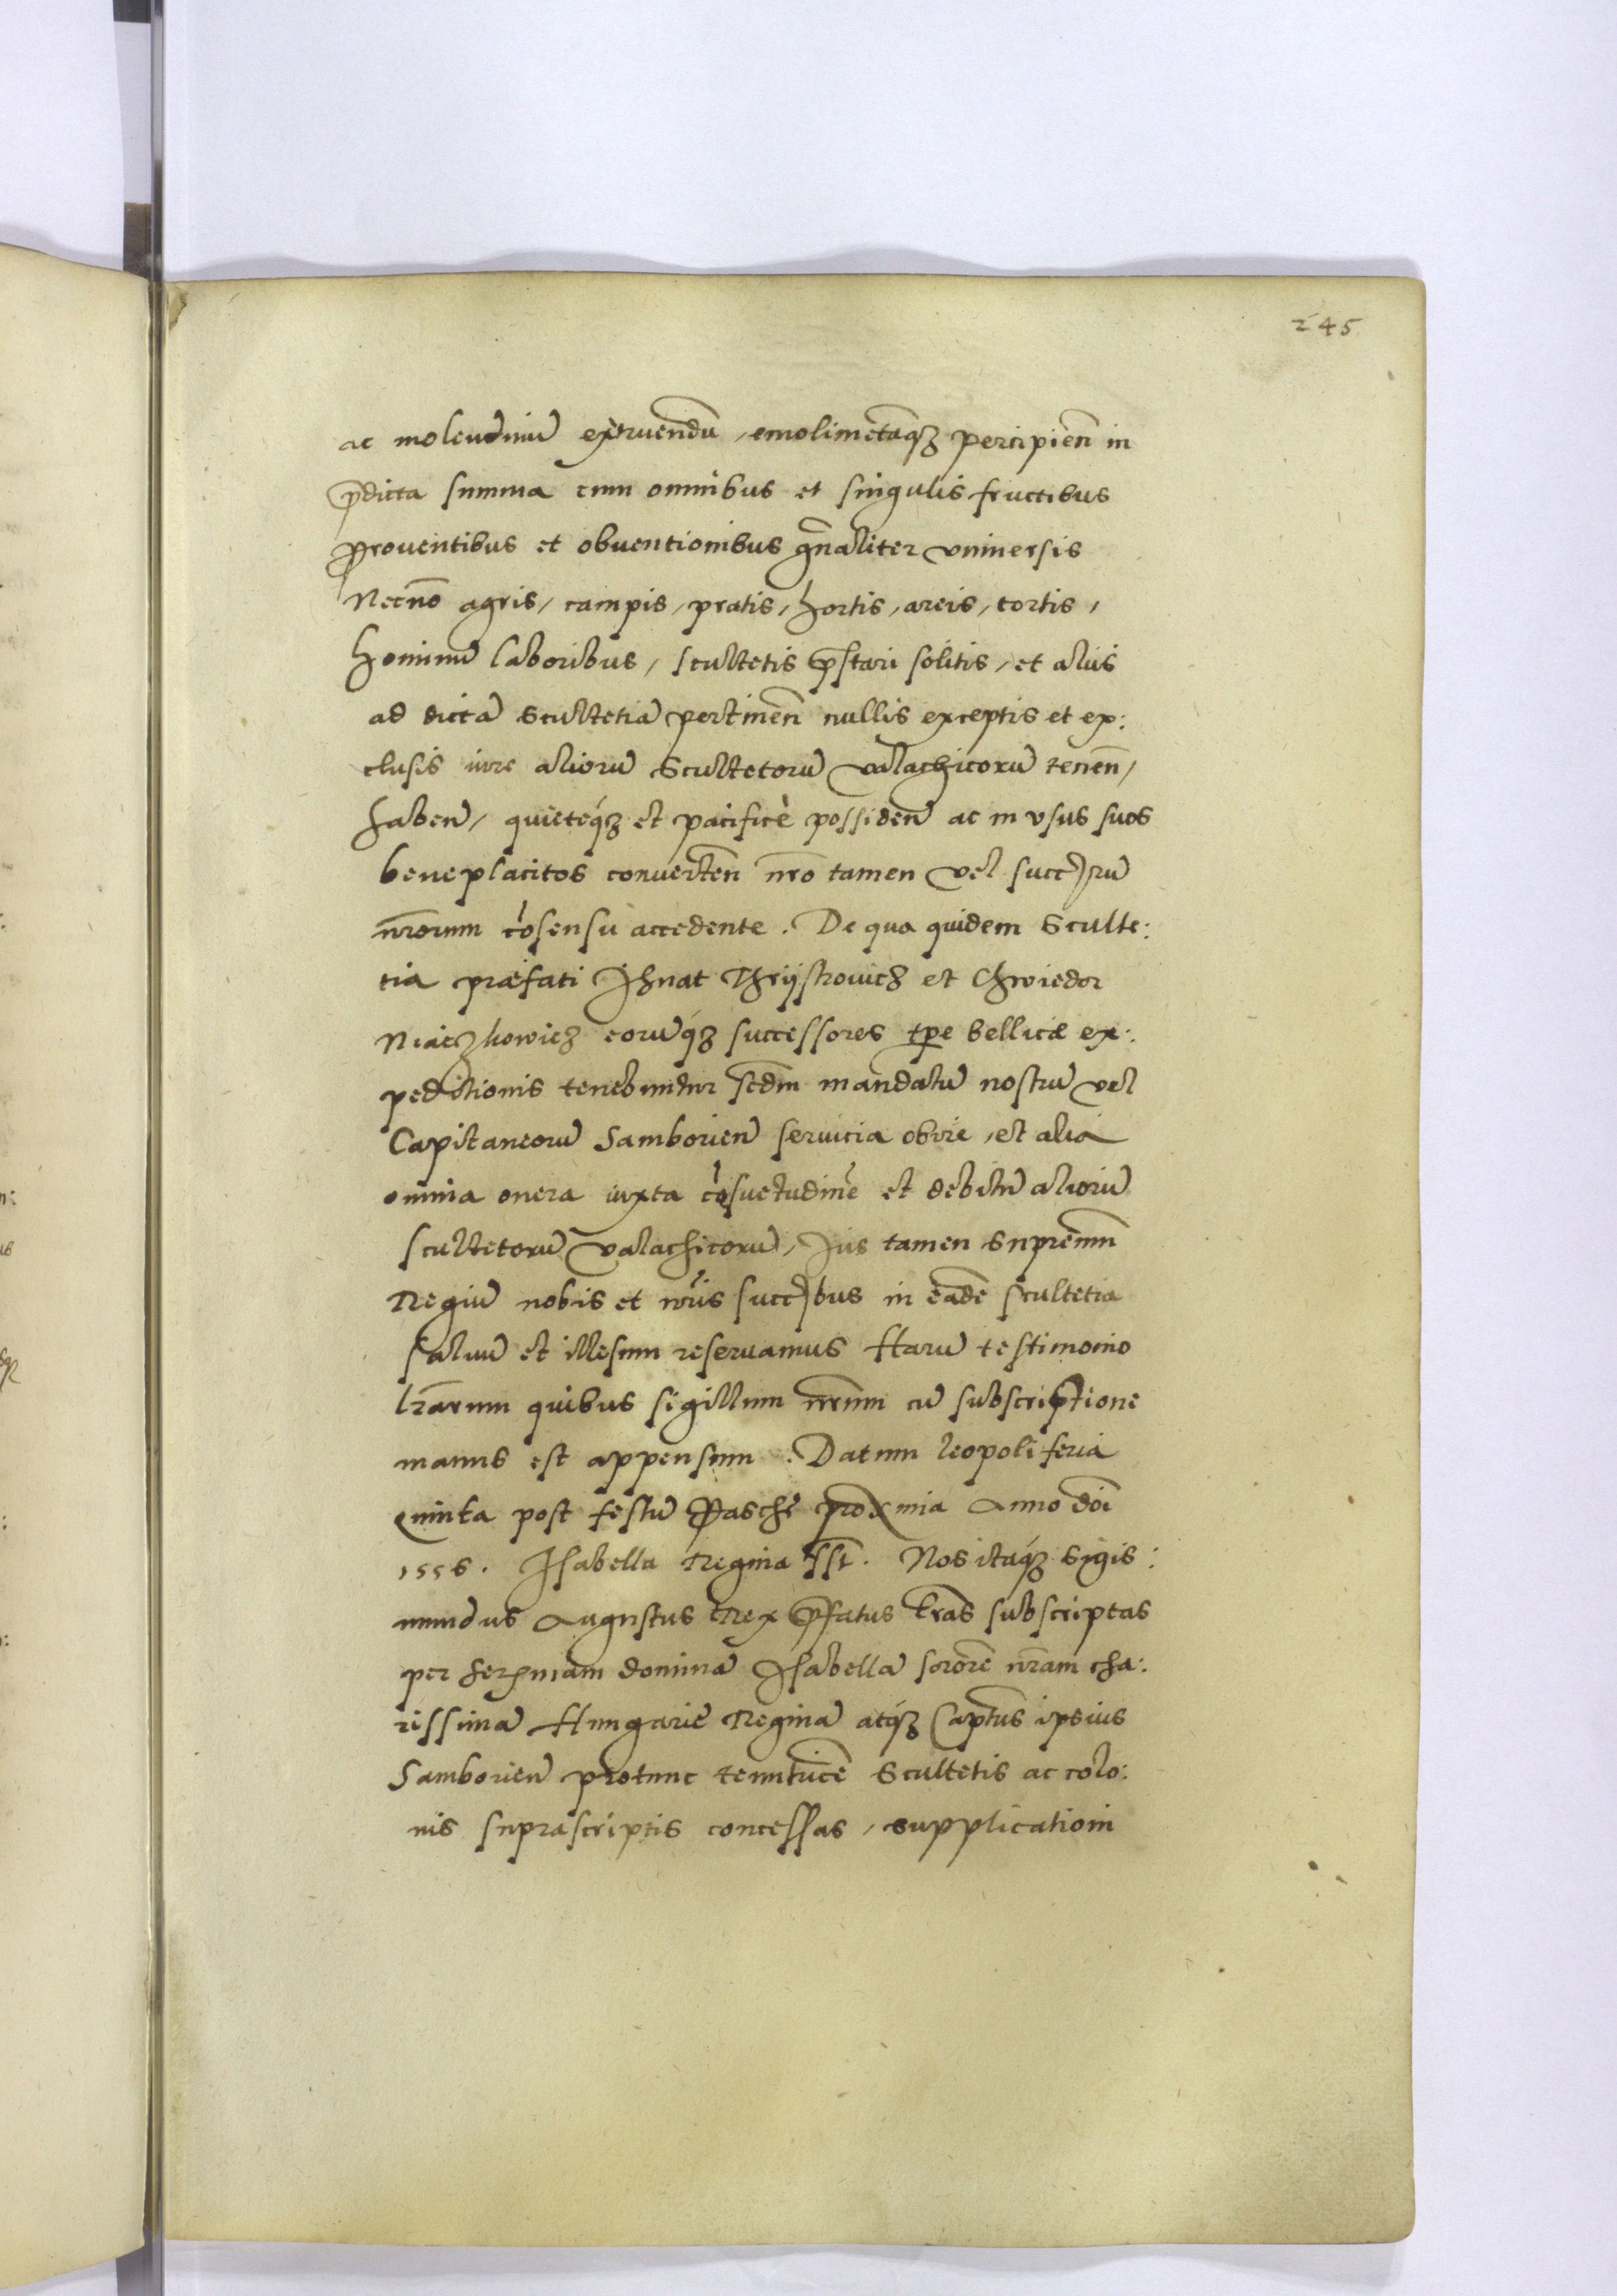 245
ac molendinū extruendū, emolimētaqȝ percipien̄ in
p̄dicta summa cum omnibus et singulis fructibus
prouentibus et obuentionibus gn̄aliter vniuersis
Necnō agris, campis, pratis, hortis, areis, tortis,
hominū laboribus, scultetis p̄stari solitis, et alijs
ad dictā Scultetiā pertinen̄ nullis exceptis et ex:
clusis iure aliorū Scultetorū valachicorū tenen̄,
haben̄, quieteqȝ et pacificè possiden̄ ac in vsus suos
beneplacitos conuerten̄ nr̄o tamen vel succrū
nr̄orum cōsensu accedente. De qua quidem Sculte:
tia præfati Ihnat Thrijstrouicz et Chwiedor
Niaczkowicz eorūqȝ successores tp̄e bellicæ ex:
peditionis tenebuntur scdm̄ mandatū nostrū vel
Capitaneorū Samborien̄ seruicia obire, et alia
omnia onera iuxta cōsuetudinē et debitū aliorū
scultetorū valachicorū, Jus tamen Supremum
Regiū nobis et nr̄is succbus in eadē scultetia
saluū et illesum reseruamus Harū testimonio
lr̄arum quibus sigillum nr̄um cū subscriptione
manus est appensum. Datum leopoli feria
quinta post festū Paschę proxima Anno doī
1556. Isabella Regina sst. Nos itaqȝ Sigis:
mundus Augustus Rex p̄fatus lr̄as subscriptas
per serx̄mam dominā Isabellā sororē nr̄am cha:
rissimā Hungarię Reginā atqȝ Captūs ipsius
Samborien̄ protunc tenutricē Scultetis ac colo:
nis suprascriptis concessas, supplicationi